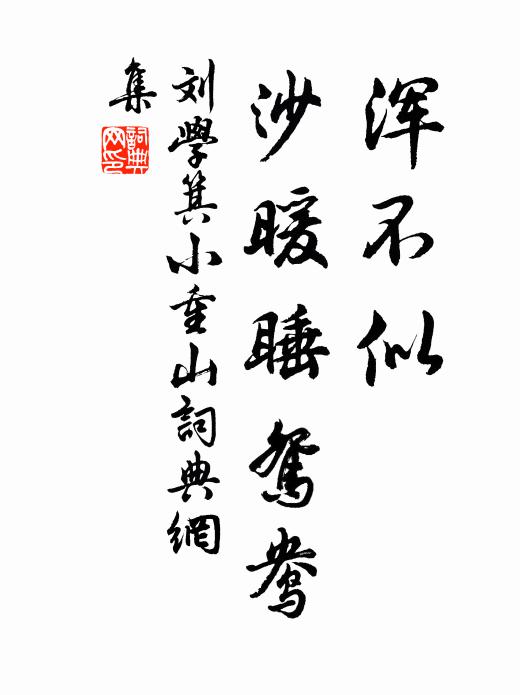 浑不似
沙暖睡鸳鸯
刘學箕小重山詞典網
集
詞典
网印